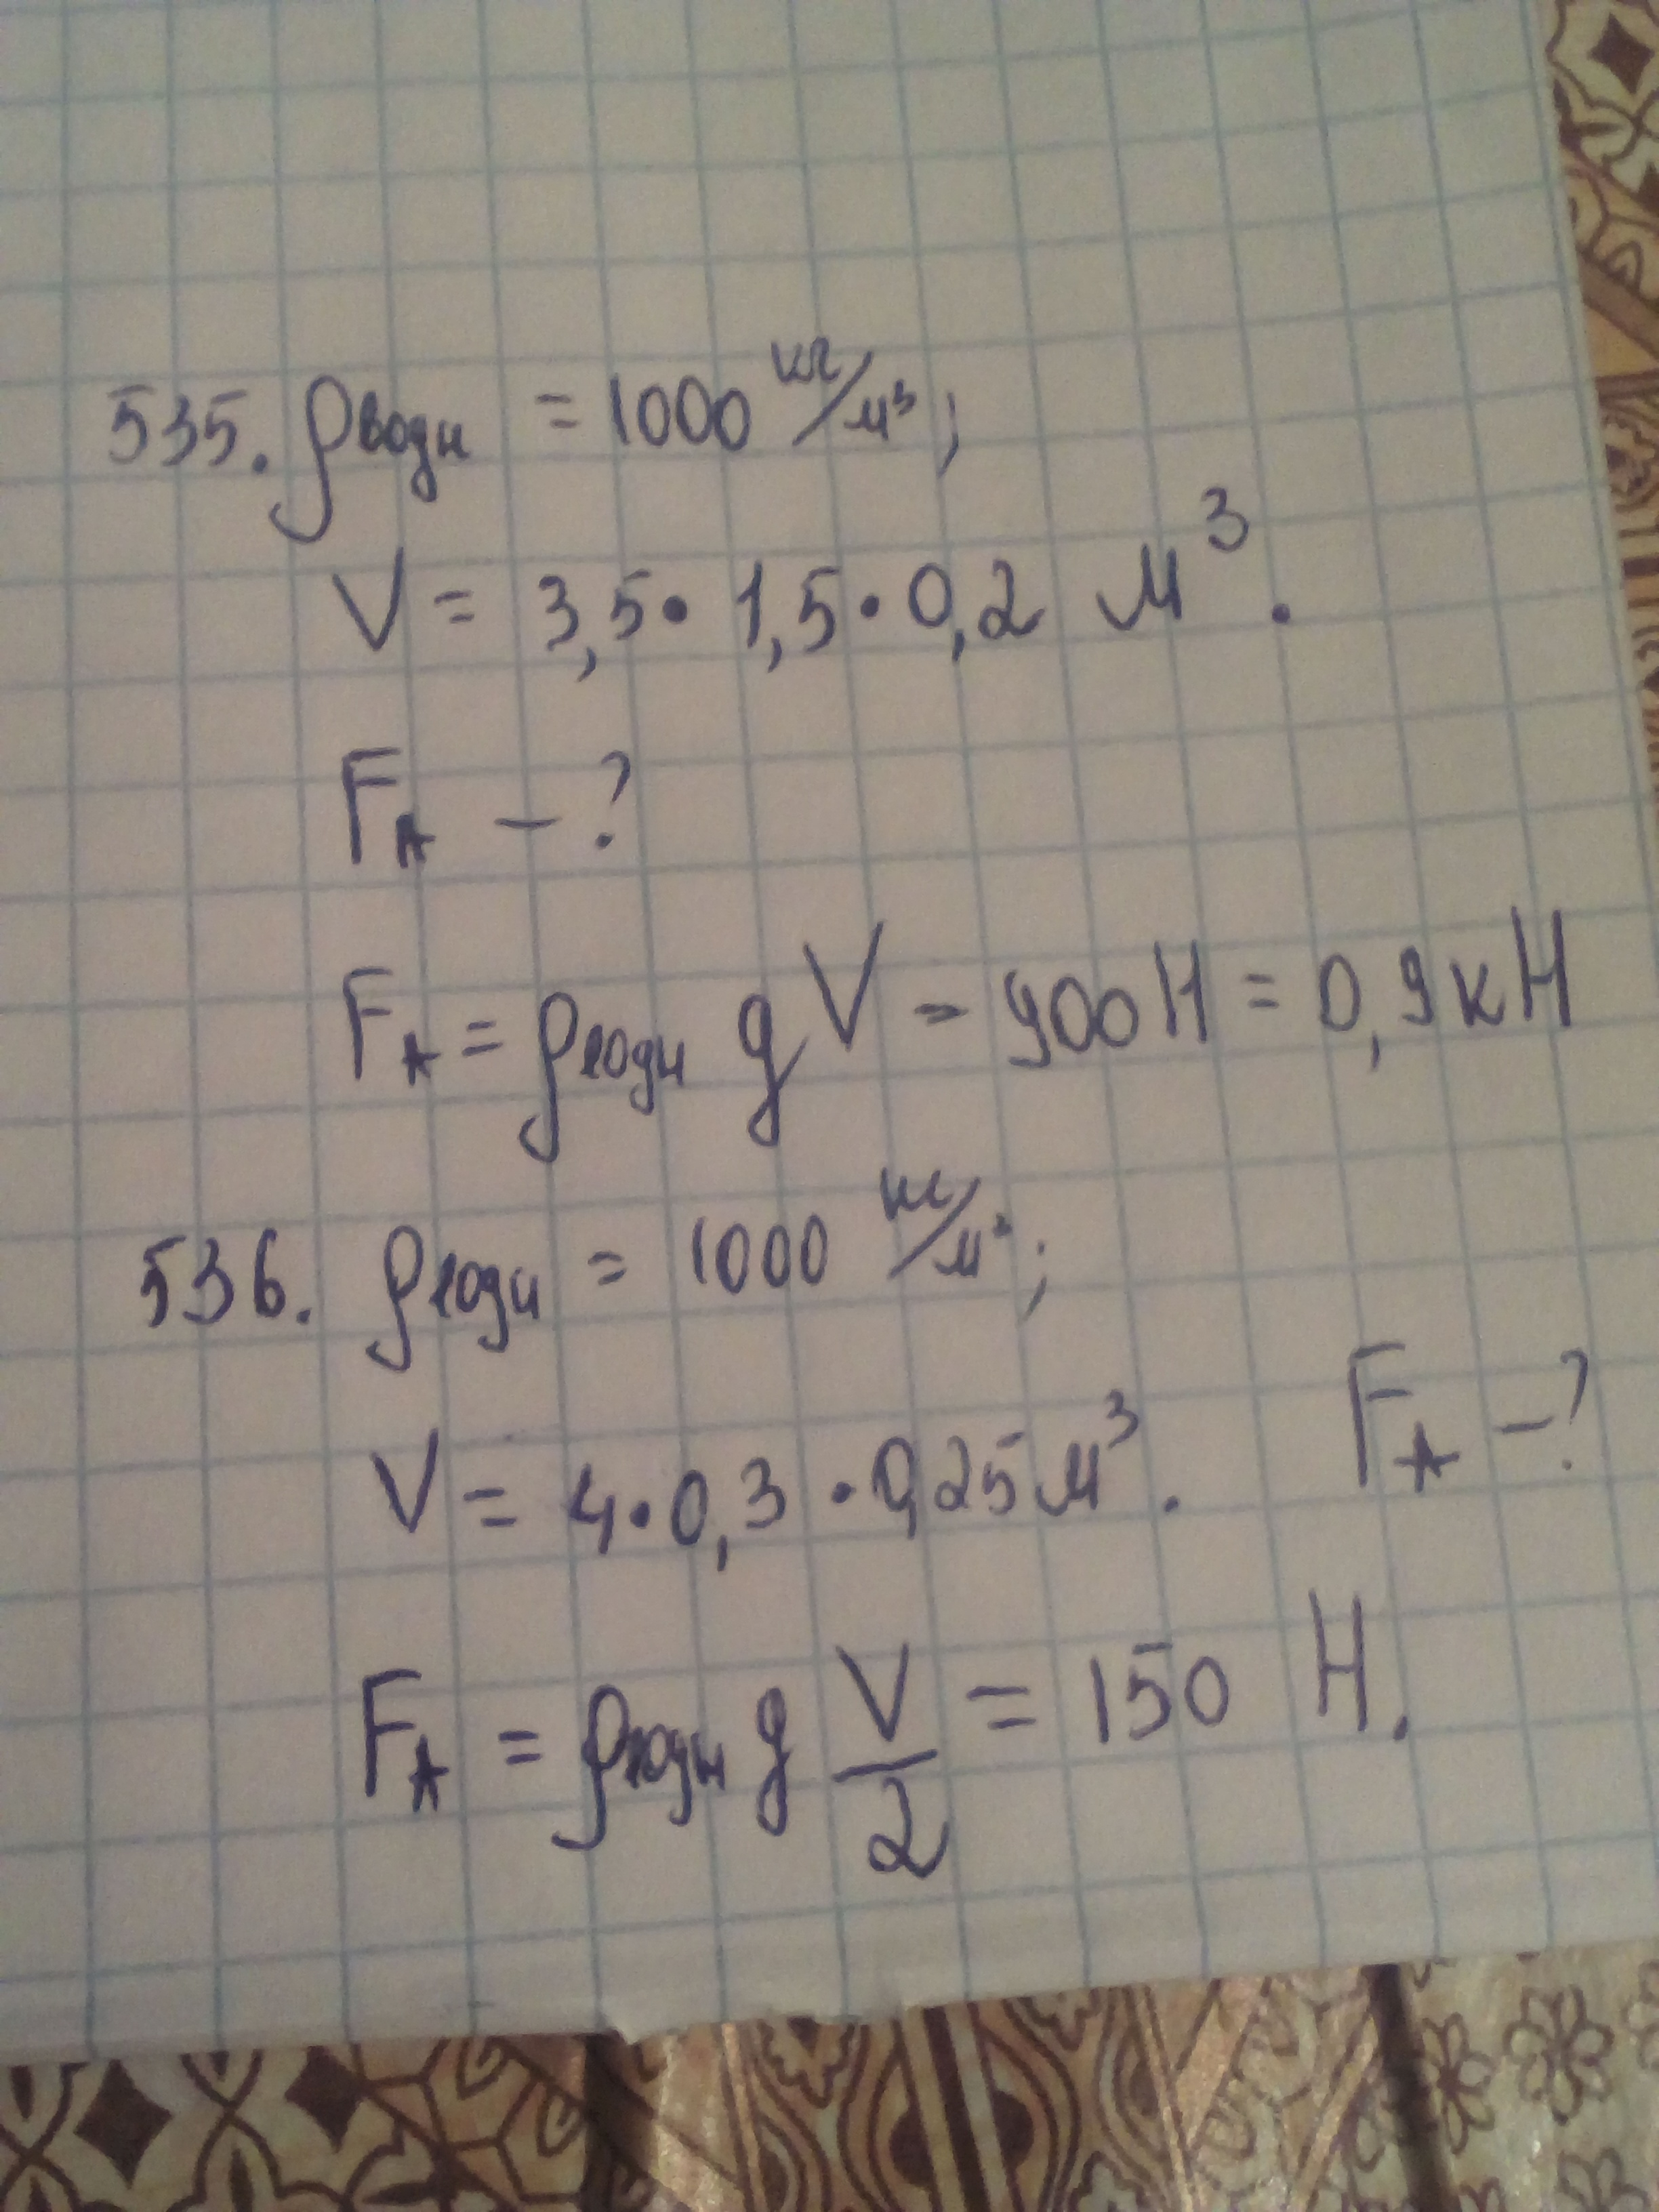 535. ρводи = 1000 кг/м³;
V = 3,5 · 1,5 · 0,2 м³.
FA – ?
FA = ρводи g V = 900 Н = 0,9 кН
536. ρводи = 1000 кг/м³;
V = 4 · 0,3 · 0,25 м³. FA – ?
FA = ρводи g V/2 = 150 Н.